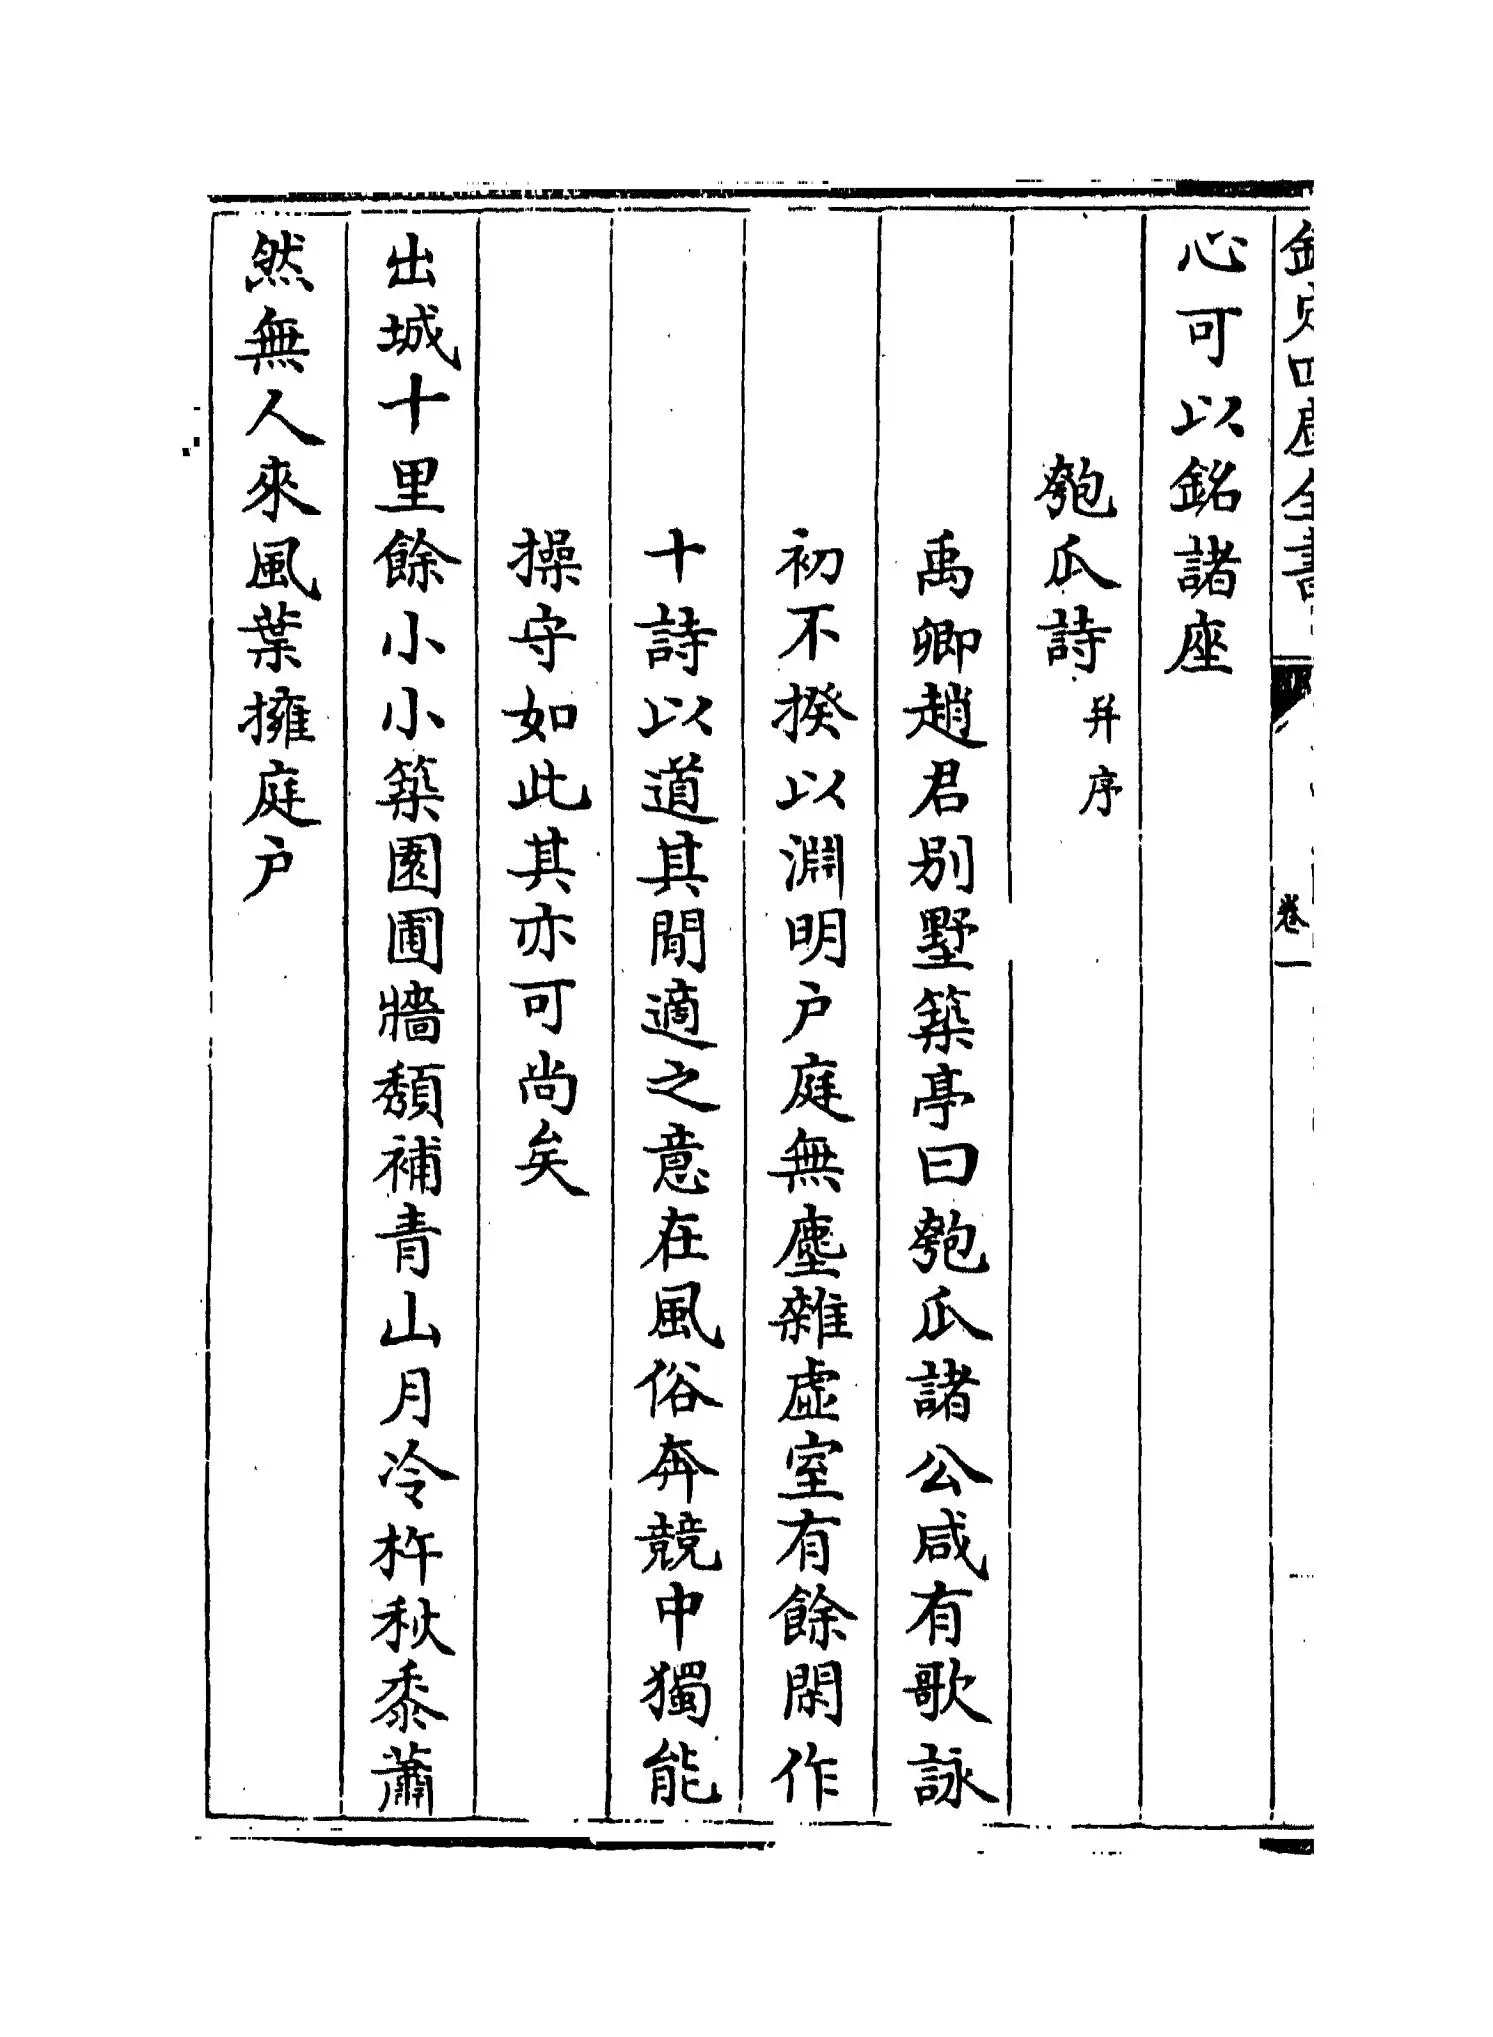 欽定四庫全書
卷一
心可以銘諸座
匏瓜詩并序
禹卿趙君别墅築亭曰匏瓜諸公咸有歌詠
初不揆以淵明户庭無塵雜虚室有餘閑作
十詩以道其閒適之意在風俗奔競中獨能
操守如此其亦可尚矣
出城十里餘小小築園圃牆頽補青山月冷杵秋黍蕭
然無人來風葉擁庭户